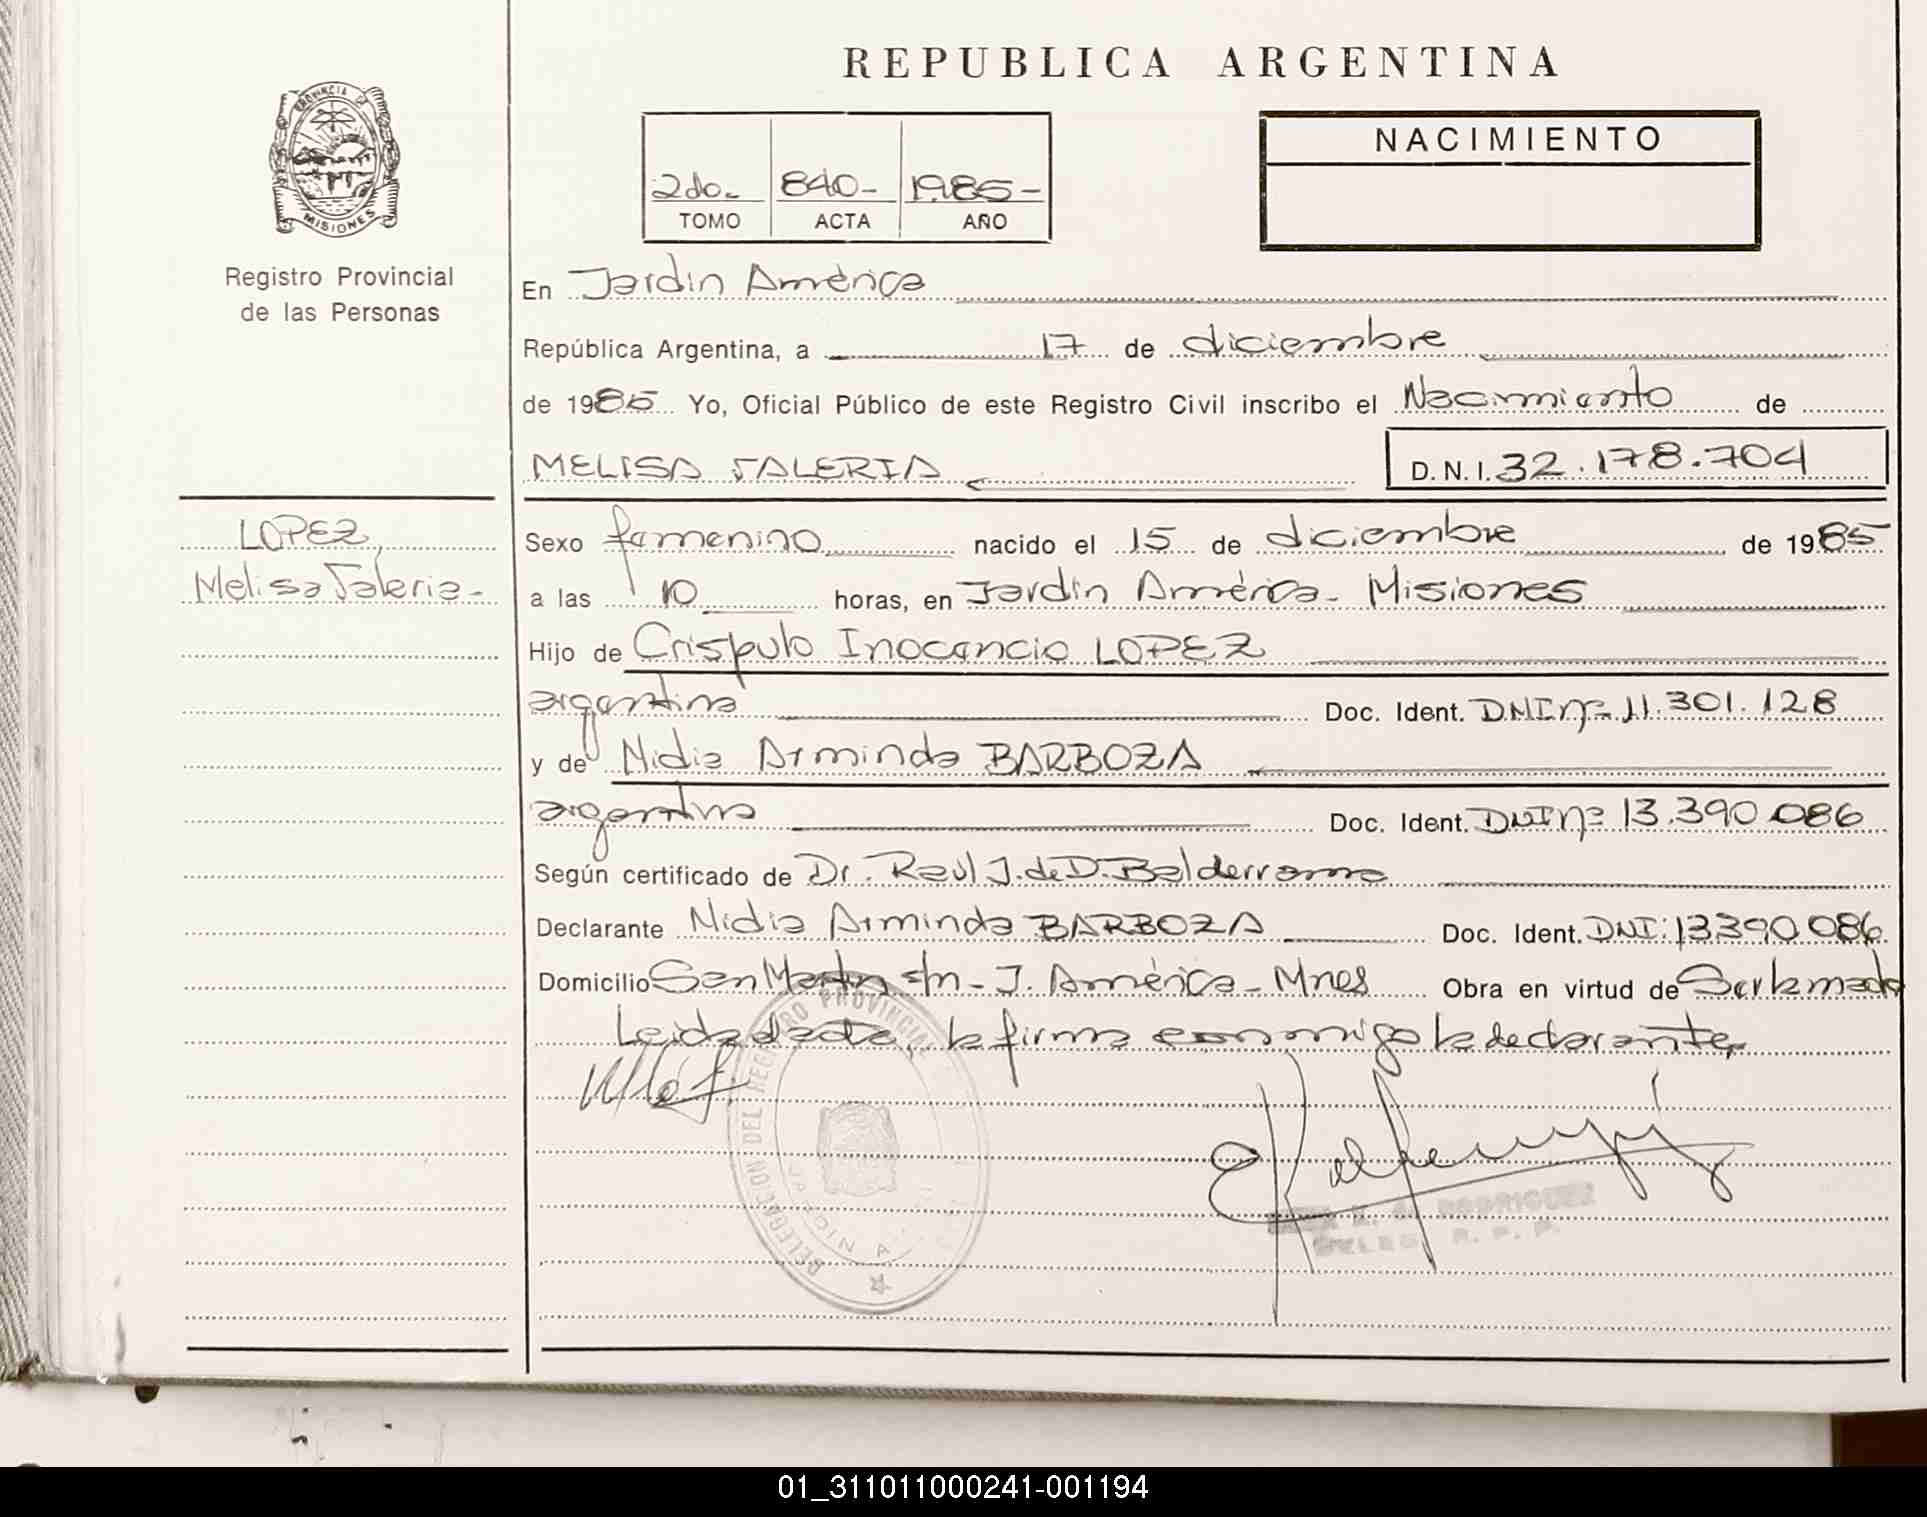 REPUBLICA ARGENTINA
PROVINCIA DE
MISIONES
Registro Provincial
de las Personas
2do- 840- 1.985-
TOMO ACTA AÑO
NACIMIENTO
En Jardin América
República Argentina, a 17 de diciembre
de 1985 Yo, Oficial Público de este Registro Civil inscribo el Nacimiento de
MELISA VALERIA D.N.I. 32.178.704
LOPEZ,
Melisa Valeria-
Sexo femenino nacido el 15 de diciembre de 1985
a las 10 horas, en Jardin América- Misiones
Hijo de Crispulo Inocencio LOPEZ
argentina Doc. Ident. DNI nº 11.301.128
y de Nidia Arminda BARBOZA
argentina Doc. Ident. DNI nº 13.390.086
Según certificado de Dr. Raul J. de D. Balderrama
Declarante Nidia Arminda BARBOZA Doc. Ident. DNI: 13390.086
Domicilio San Martin s/n- J. América- Mnes Obra en virtud de Ser la madre
Leida el acta, la firma conmigo la declarante
DELEGACION DEL REGISTRO PROVINCIAL
RODRIGUEZ
R. P. P.
01_311011000241-001194